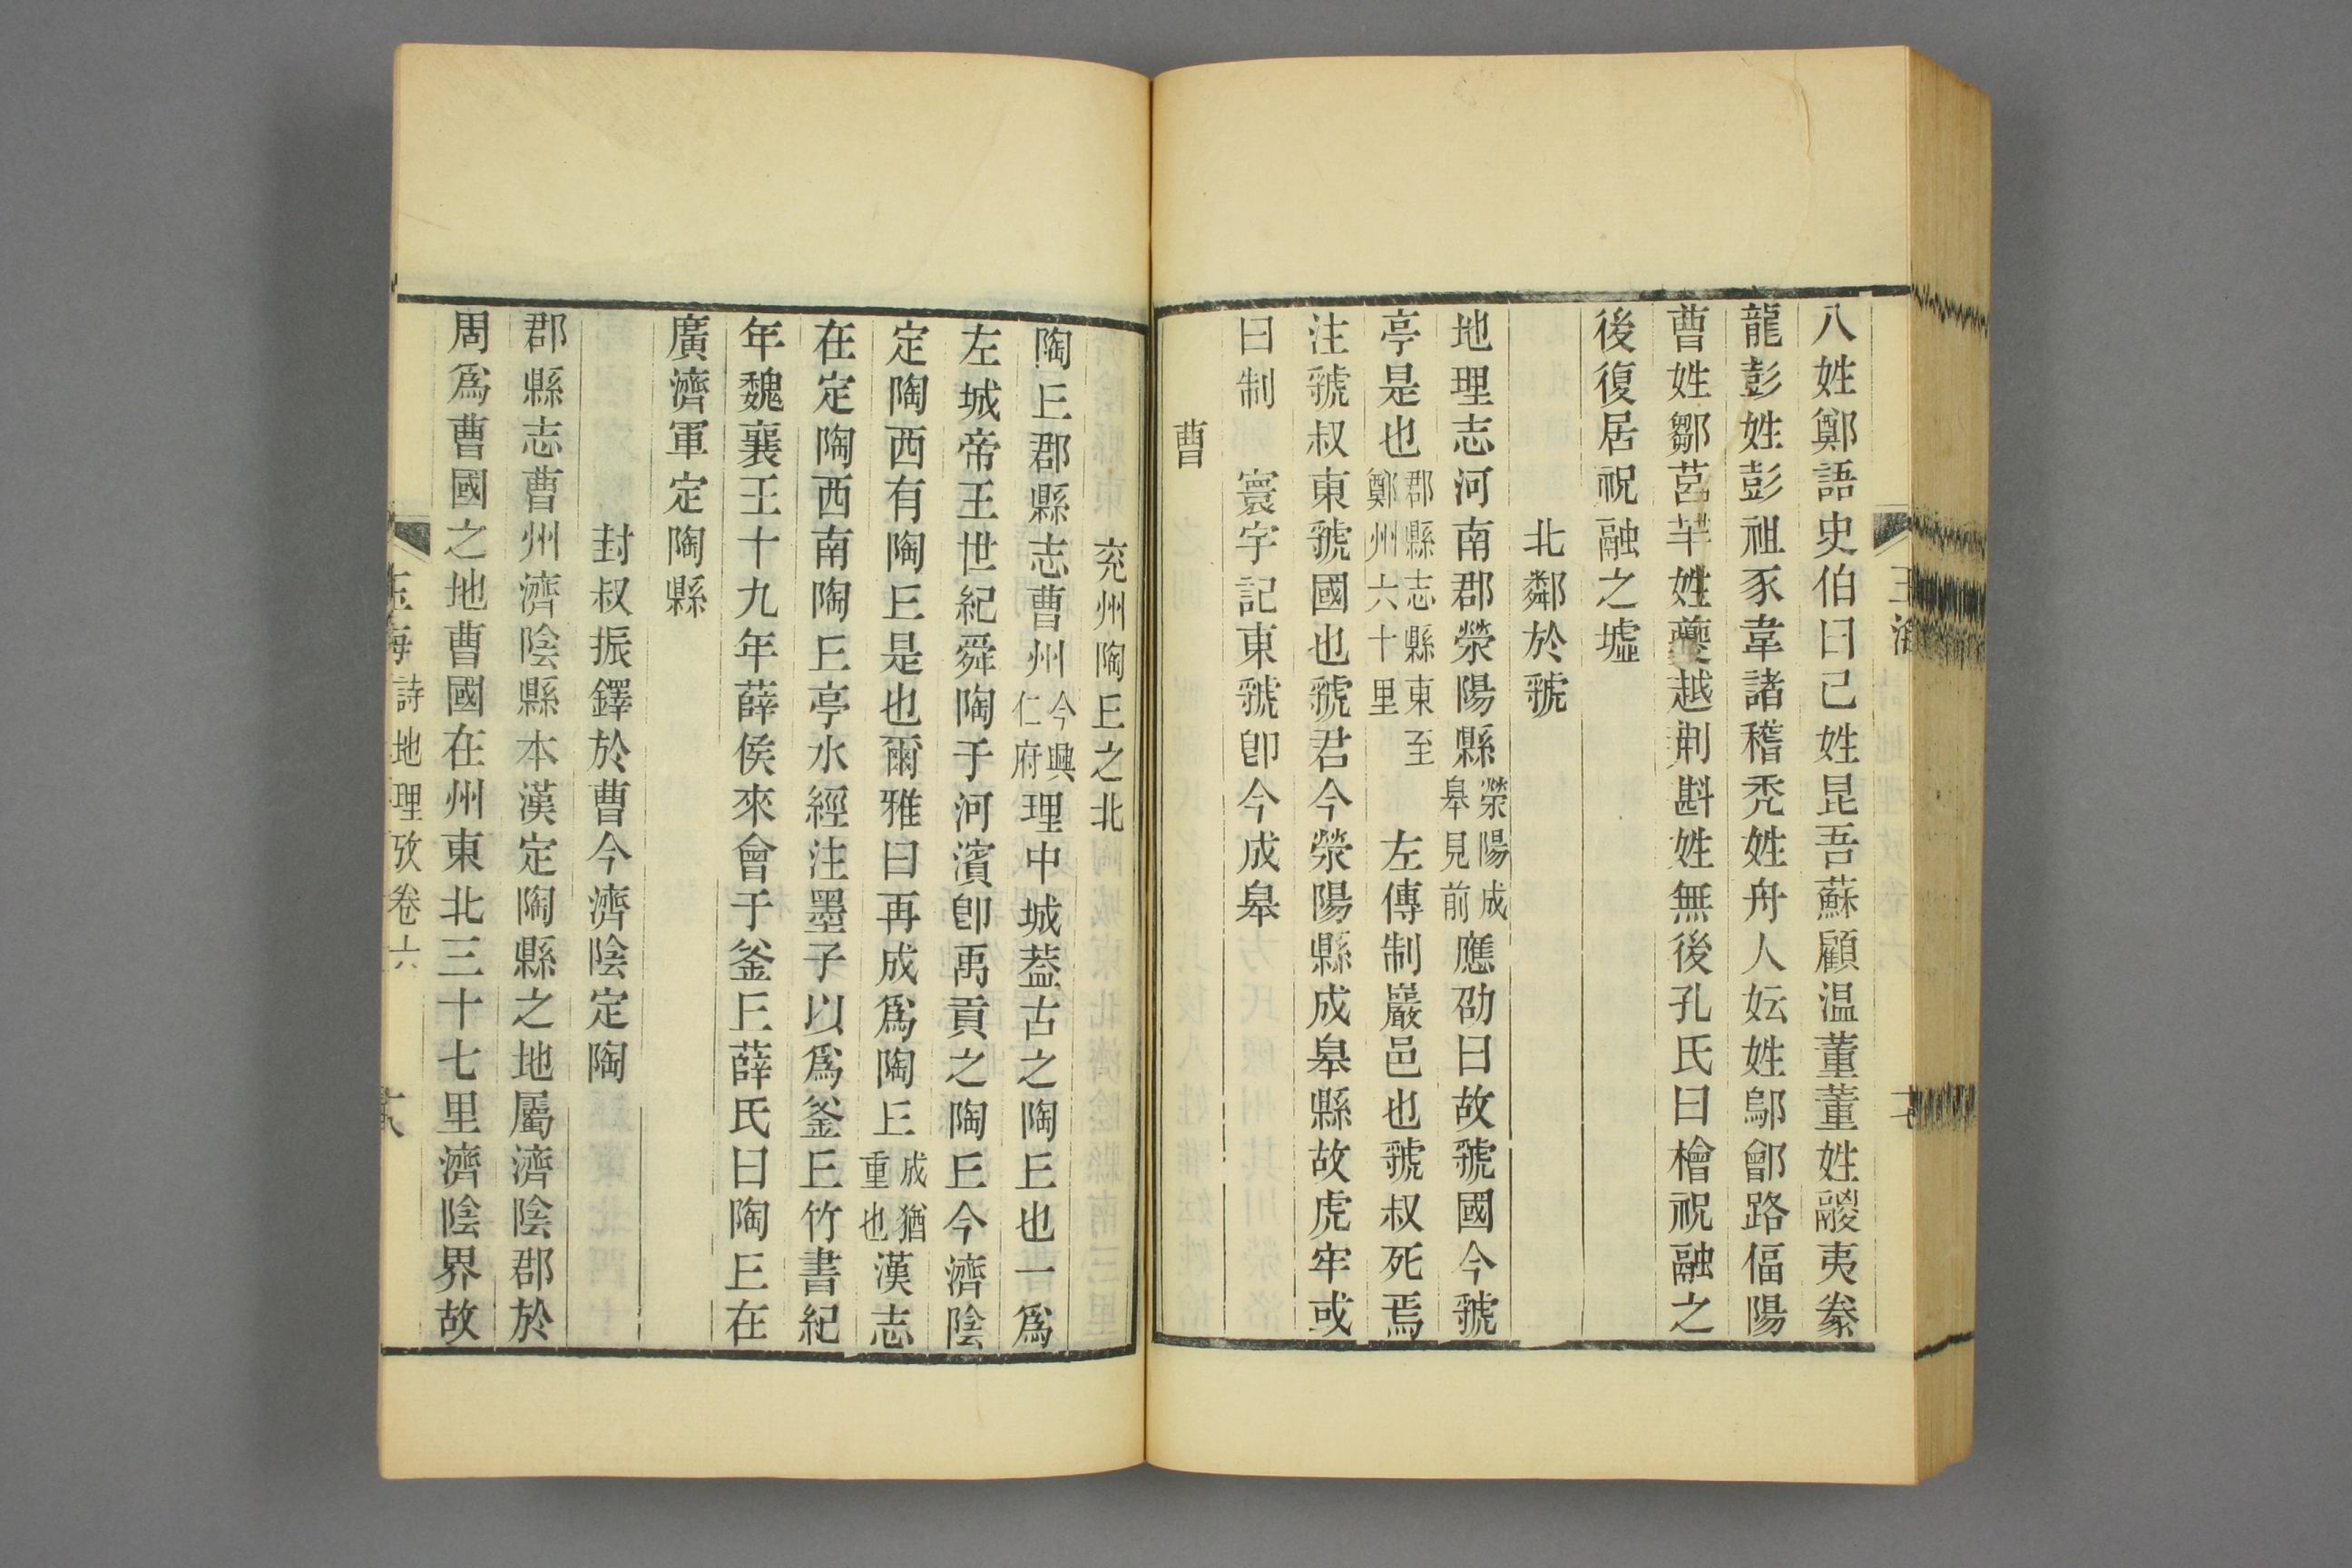 八姓鄭語史伯曰己姓昆吾蘇顧温董董姓鬷夷豢
龍彭姓彭祖豕韋諸稽禿姓舟人妘姓鄔鄶路偪陽
曹姓鄒莒羋姓夔越荆斟姓無後孔氏曰檜祝融之
後復居祝融之墟
北鄰於虢
地理志河南郡滎陽縣滎陽成皋見前應劭曰故虢國今虢
亭是也郡縣志縣東至鄭州六十里左傳制巖邑也虢叔死焉
注虢叔東虢國也虢君今滎陽縣成皋縣故虎牢或
曰制寰宇記東虢卽今成皋
曹
兖州陶丘之北
陶丘郡縣志曹州今興仁府理中城葢古之陶丘也一爲
左城帝王世紀舜陶于河濱卽禹貢之陶丘今濟陰
定陶西有陶丘是也爾雅曰再成爲陶丘成猶重也漢志
在定陶西南陶丘亭水經注墨子以爲釜丘竹書紀
年魏襄王十九年薛侯來會于釜丘薛氏曰陶丘在
廣濟軍定陶縣
封叔振鐸於曹今濟陰定陶
郡縣志曹州濟陰縣本漢定陶縣之地屬濟陰郡於
周爲曹國之地曹國在州東北三十七里濟陰界故
玉海 詩地理攷卷六 十八